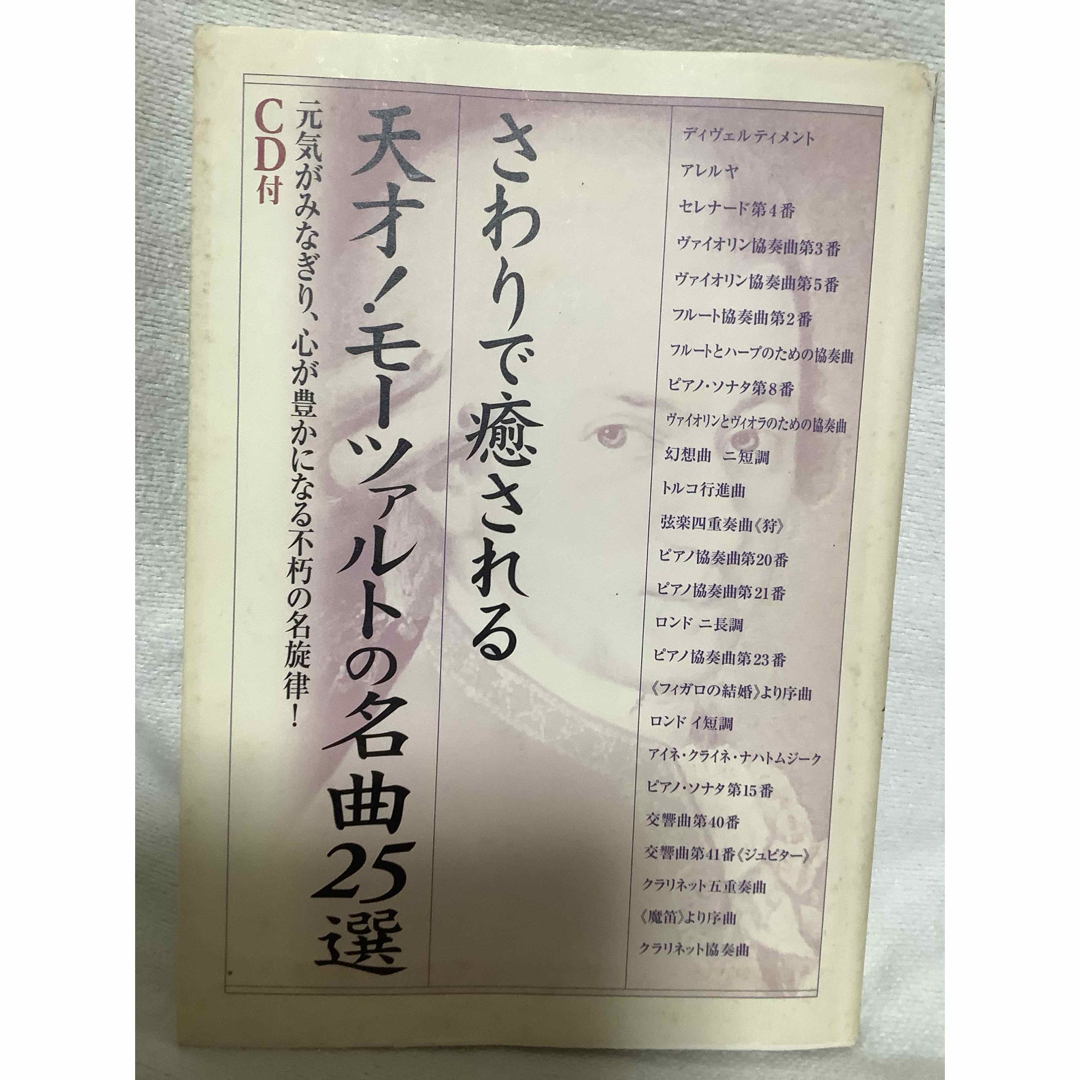 ディヴェルティメント
アレルヤ
セレナード第4番
ヴァイオリン協奏曲第3番
ヴァイオリン協奏曲第5番
フルート協奏曲第2番
フルートとハープのための協奏曲
ピアノ・ソナタ第8番
ヴァイオリンとヴィオラのための協奏曲
幻想曲 ニ短調
トルコ行進曲
弦楽四重奏曲《狩》
ピアノ協奏曲第20番
ピアノ協奏曲第21番
ロンド ニ長調
ピアノ協奏曲第23番
《フィガロの結婚》より序曲
ロンド イ短調
アイネ・クライネ・ナハトムジーク
ピアノ・ソナタ第15番
交響曲第40番
交響曲第41番《ジュピター》
クラリネット五重奏曲
《魔笛》より序曲
クラリネット協奏曲
さわりで癒される
天才!モーツァルトの名曲25選
元気がみなぎり、心が豊かになる不朽の名旋律!
CD付